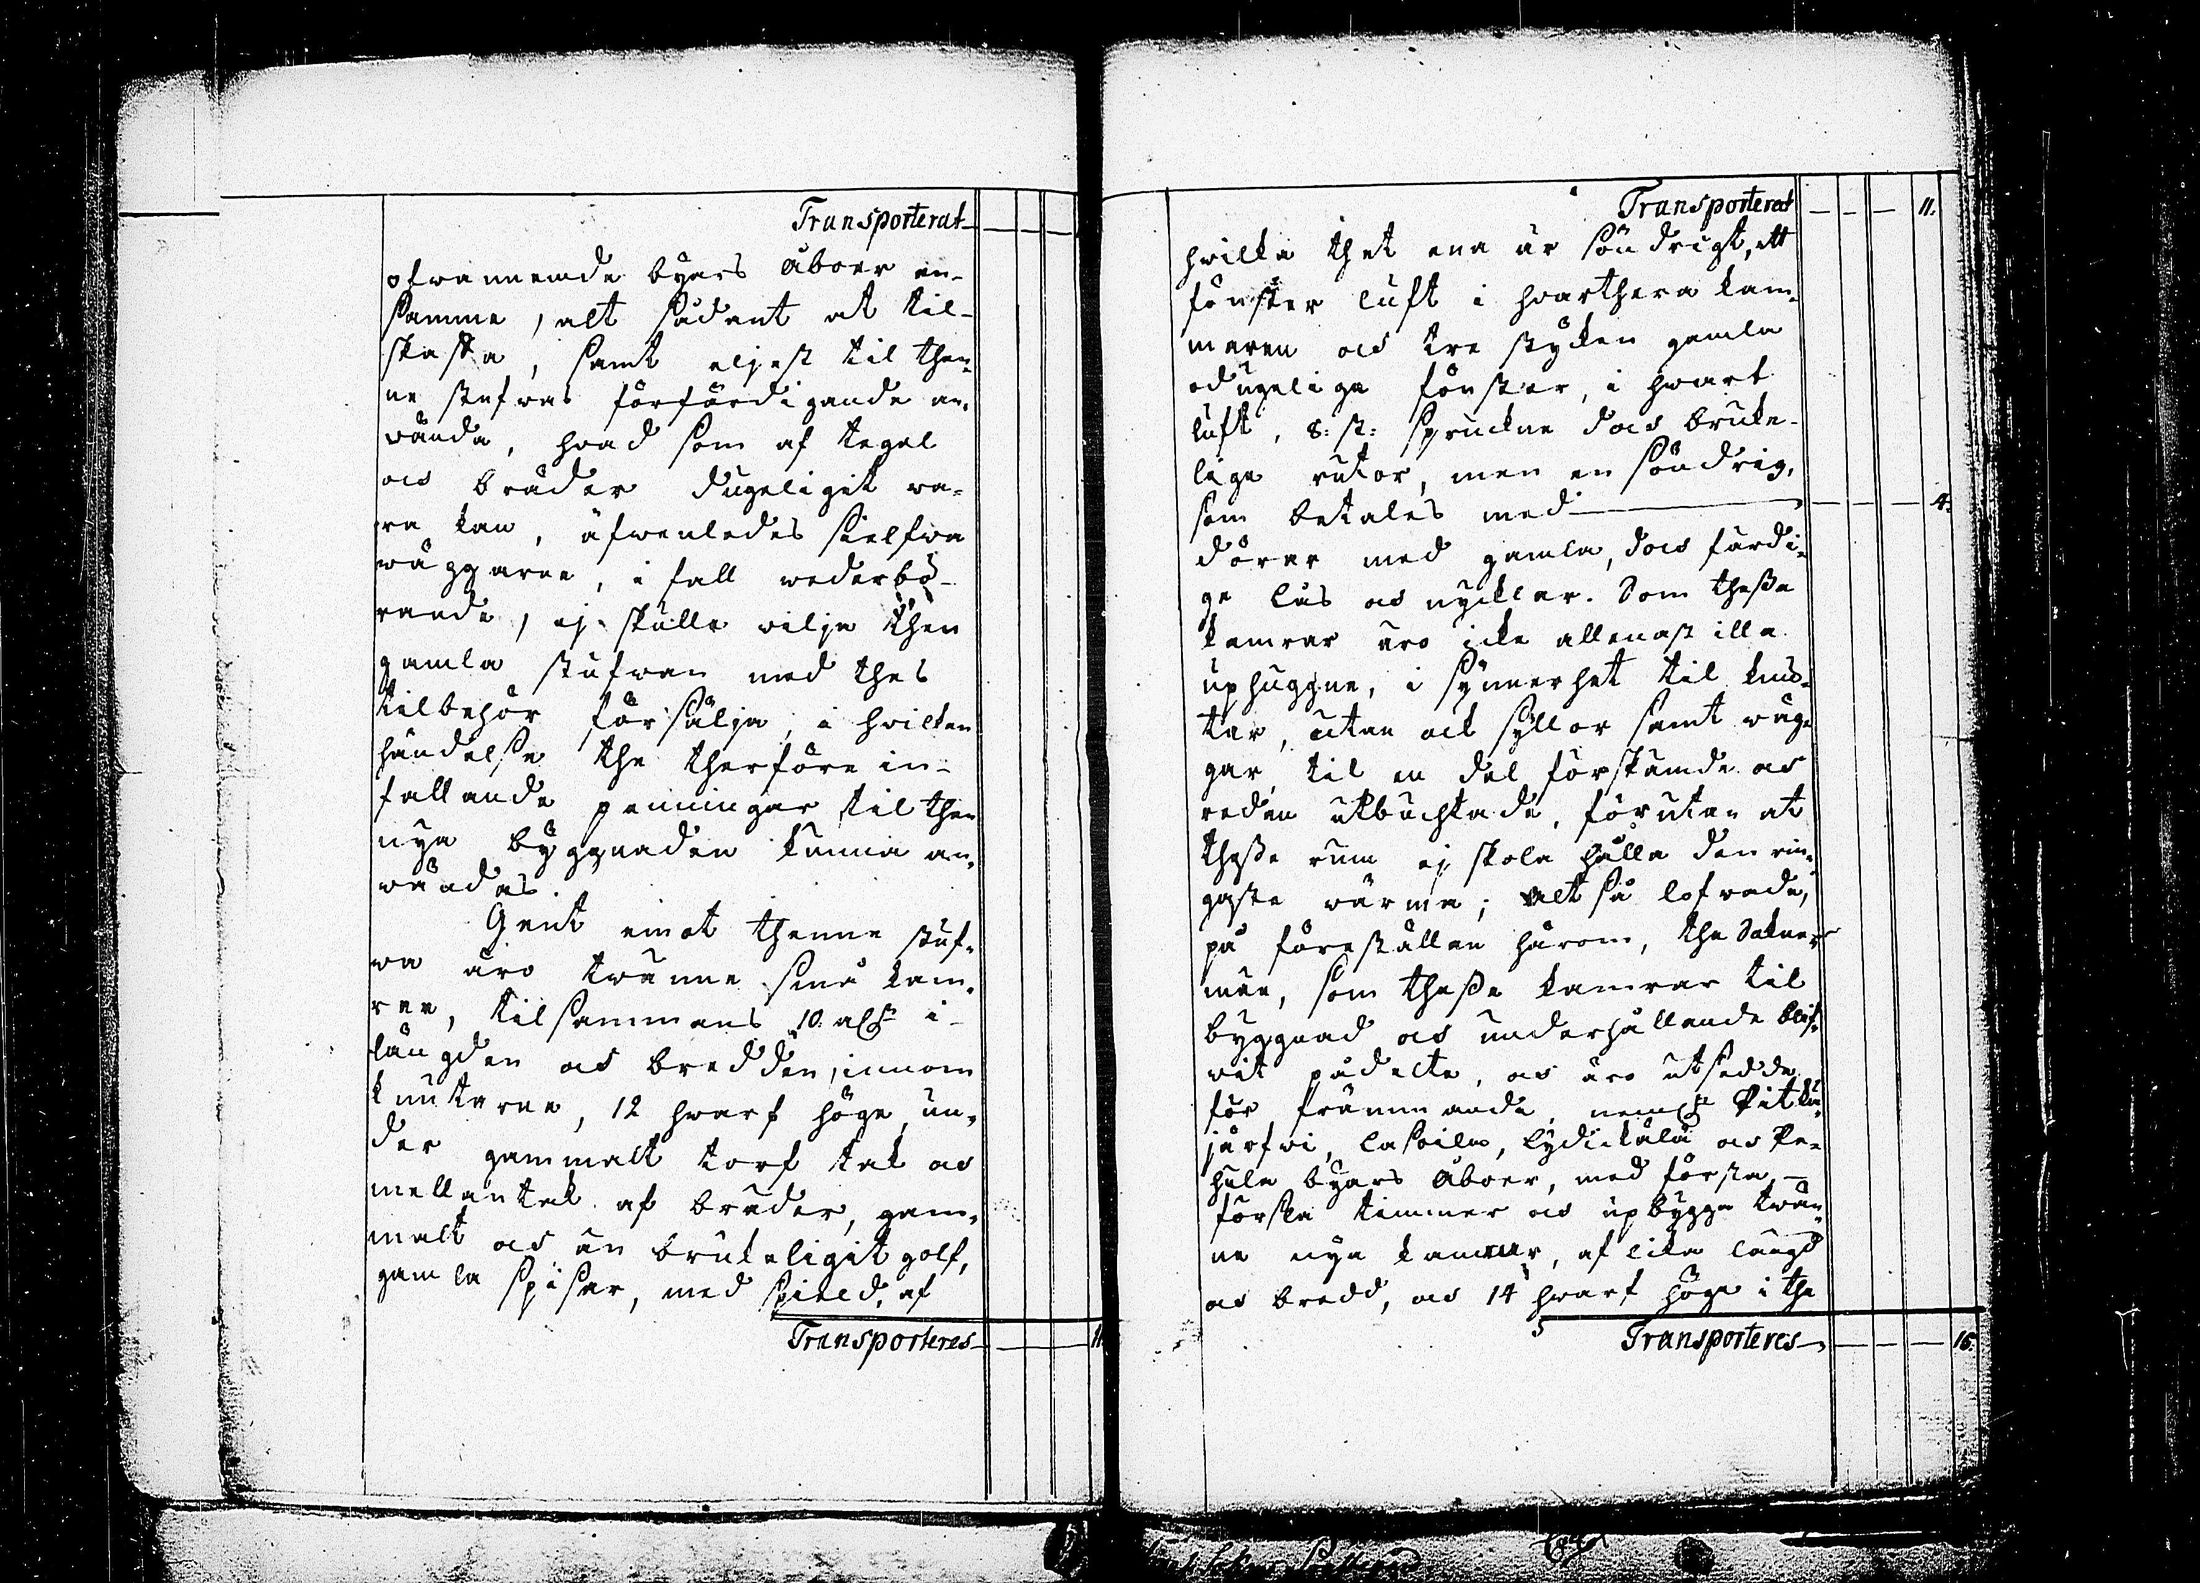 Transporterat
ofwannemde byars Åboer en-
samme, alt sådant at til-
skaffa, samt eljest til then-
ne stufwas förfärdigande an-
wända, hvad som af tegel
och bräder dugeligit wa-
ra kan, äfwenledes sielfwa
wäggarne, i fall wederbö-
rande, ej skulle wilja then
gamla stufwan med thes
tilbehör försälja, i hvilken
händelse the therföre in-
fallande penningar til then
nya byggnaden kunna an-
wändas.
Gent emot thenne stuf-
wa äro twänne små kam-
rar, tilsammans 10. aln:r i
längden och bredden, innom
knutarne, 12 hwarf höge, un-
der gammalt torf tak och
mellantak af bräder, gam-
malt och än brukeligit golf,
gamla spisar, med spield, af
Transporteres 11.
Transporterat 11.
hvilka thet ena är söndrigt, ett
fönster luft i hvarthera kam-
maren och tre stycken gamla
odugeliga fönster, i hwart
luft, 8: st: spruckne doch bruke-
liga rutor, men en söndrig,
som betales med 4.
dörar med gamla, doch färdi-
ge lås och nycklar. Som thesse
kamrar äro icke allenast illa
uphuggne, i synnerhet til knu-
tar, utan ock syllor samt wäg-
gar til en del förskämde och
redan utbuchtade, förutan at
thesse rum ej skola hålla den rin-
gaste wärma; Altså lofwade,
på föreställan härom, the Sakne-
män, som thesse kamrar til
byggnad och underhållande blif-
wit pådelte, och äro utsedde
för främmande, neml:n Pitkä-
järfwi, Lasoila, Lydickälä och Pe-
hula byars Åboer, med första,
förska timmer och upbygga twän-
ne nya kamrar, af lika längd
och bredd, och 14 hwarf höge i the
Transporteres 15.